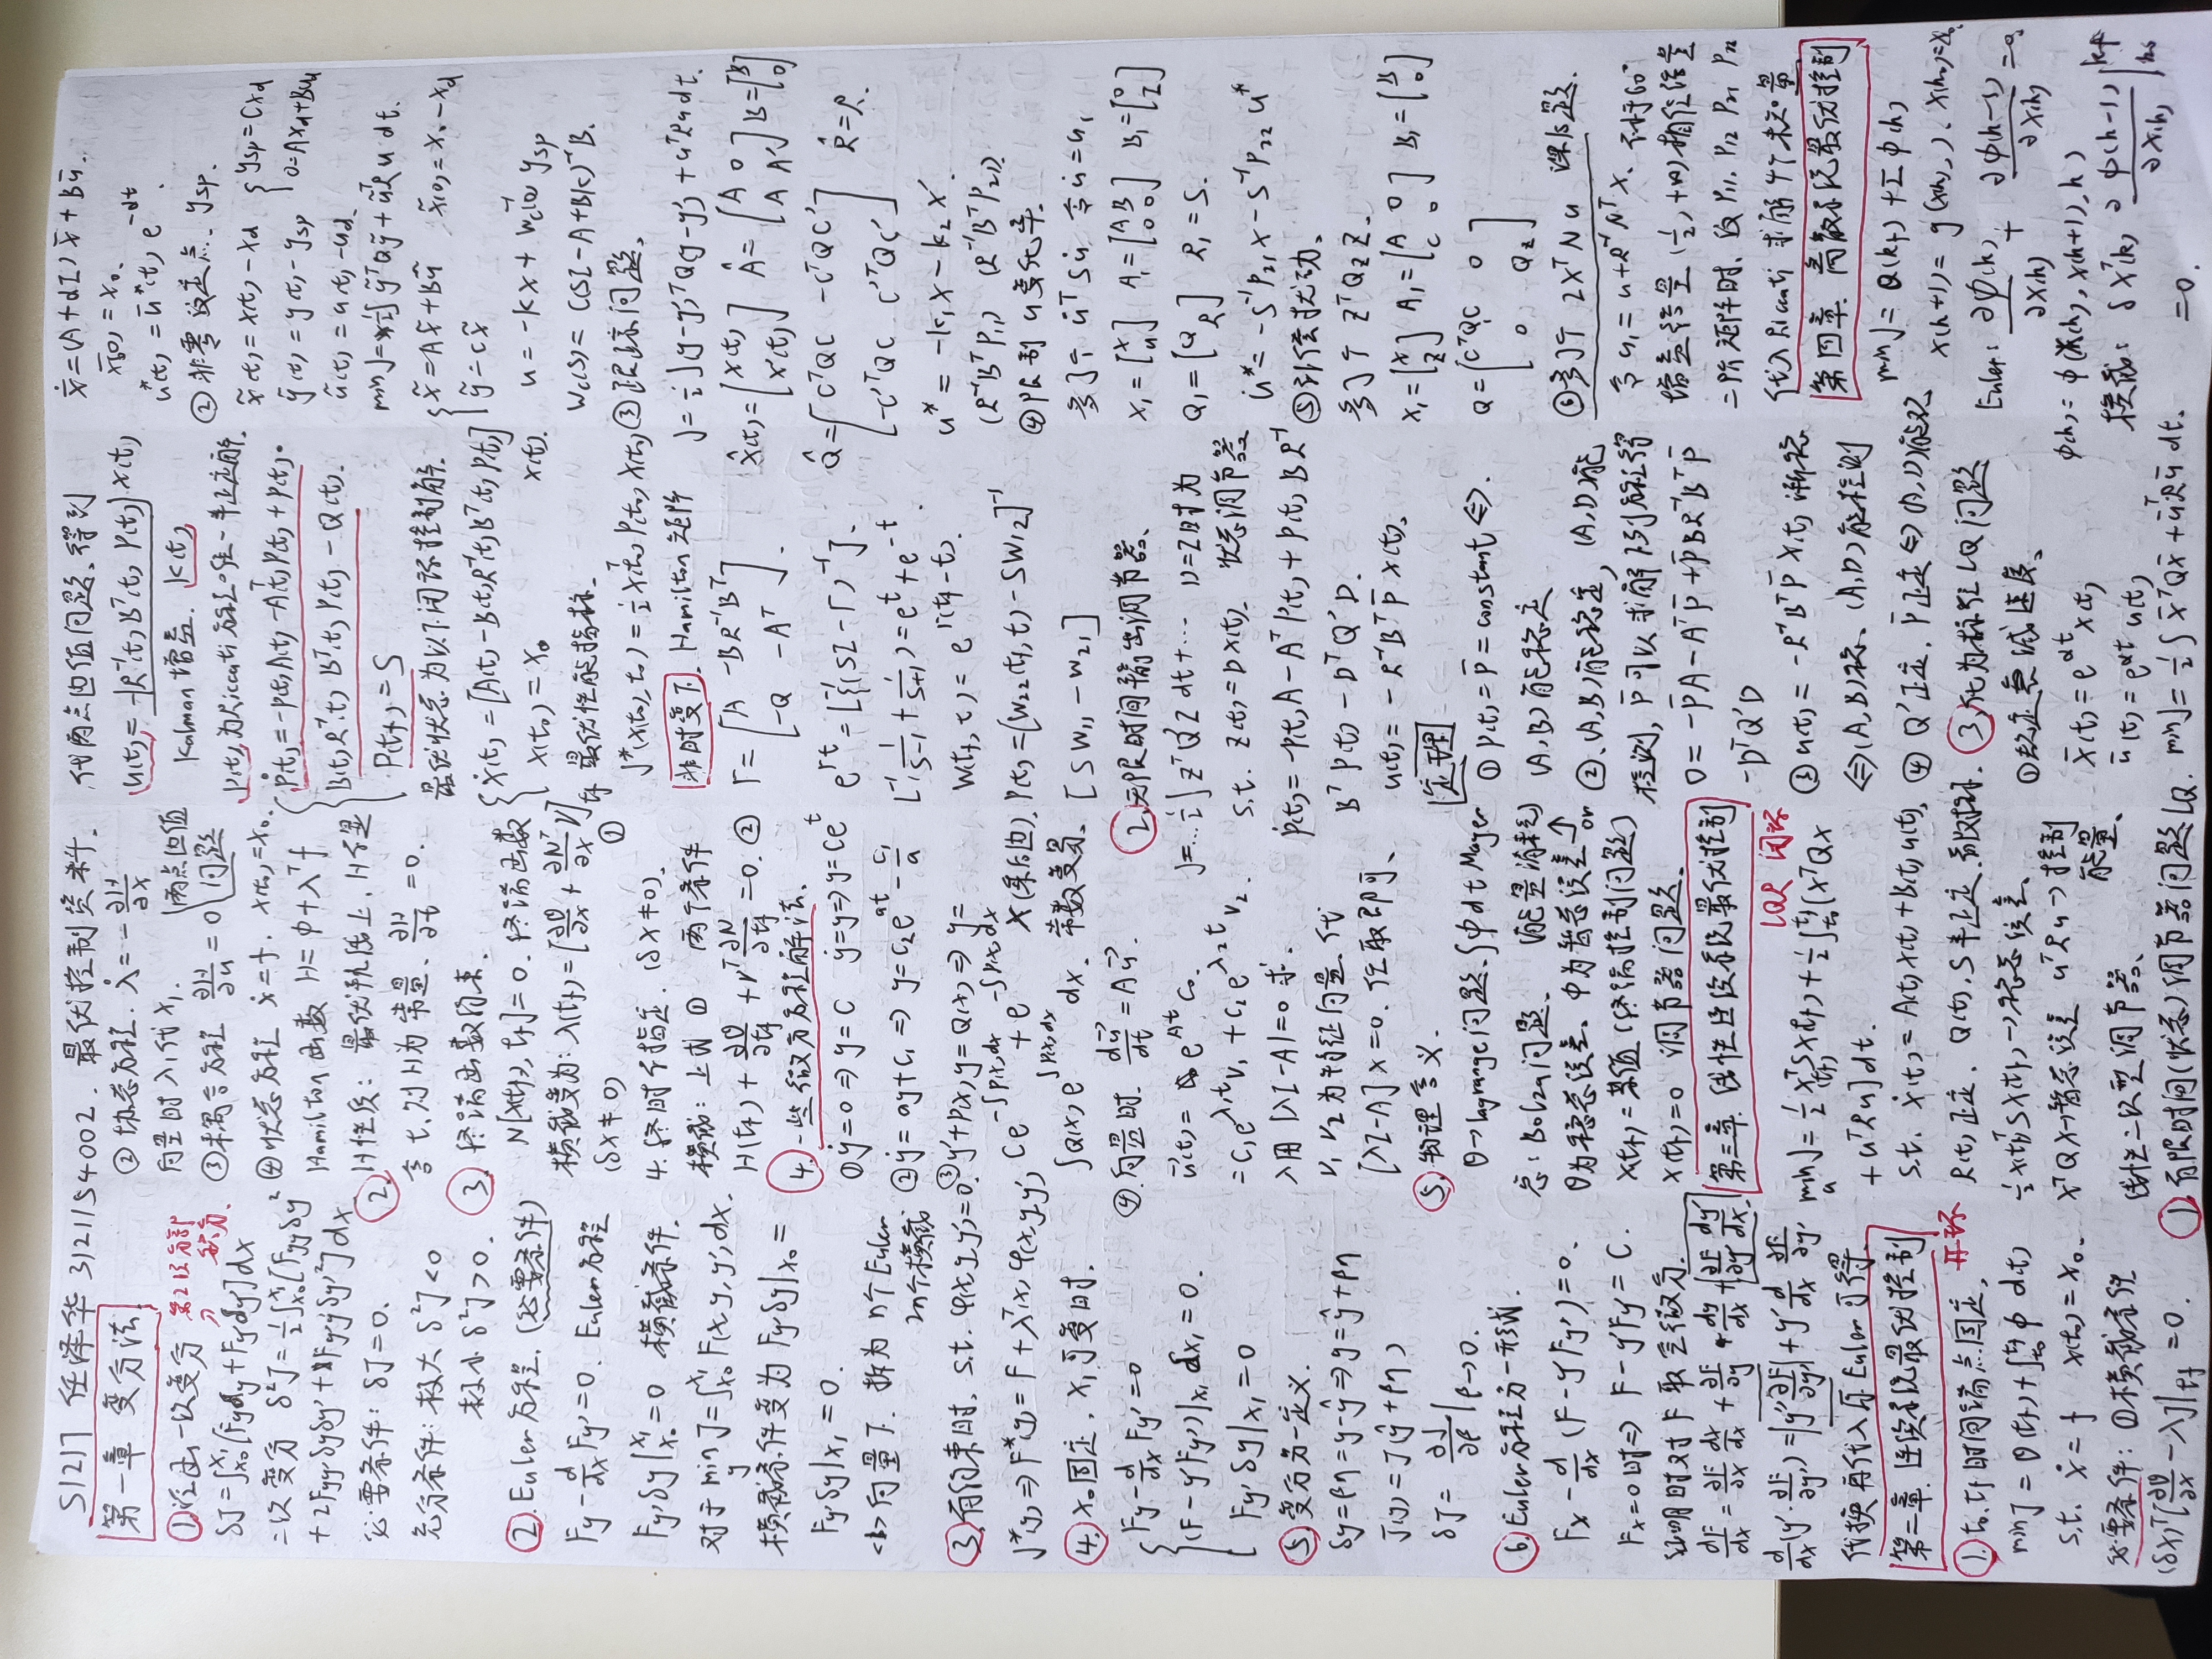 S1217 任泽华 3121154002. 最优控制资料.
第一章 变分法
① 泛函一次变分 第2项分部积分.
δJ=∫_{x0}^{x1}[Fyδy+Fy'δy']dx
二次变分 δ²J=½∫_{x0}^{x1}[Fyyδy²
+2Fyy'δyδy'+Fy'y'δy'²]dx
必要条件: δJ=0.
充分条件: 极大 δ²J<0
极小 δ²J>0.
② Euler方程. (必要条件)
Fy-d/dx Fy'=0. Euler方程
Fy'δy|_{x0}^{x1}=0 横截条件.
对于 min J=∫_{x0}^{x1}F(x,y,y')dx.
横截条件变为 Fy'δy|x0=
Fy'δy|x1=0.
<b>向量下. 拆为 n个Euler
2n个横截
③ 有约束时, s.t. φ(x,y,y')=0.
J*(y)=>F*=F+λᵀ(x)φ(x,y,y')
④ x0固定, x1可变时.
Fy-d/dx Fy'=0
(F-y'Fy')|x1 dx1=0.
Fy'δy|x1=0
⑤ 变分另一定义.
δy=ρη=y-ŷ=>y=ŷ+ρη
J(y)=J(ŷ+ρη)
δJ=∂J/∂ρ|ρ→0.
⑥ Euler方程另一形式.
Fx-d/dx(F-y'Fy')=0.
Fx=0时=>F-y'Fy'=C.
证明时对F取全微分.
dF/dx=∂F/∂x+∂F/∂y dy/dx+∂F/∂y' dy'/dx
d/dx(y'∂F/∂y')=y''∂F/∂y'+y'd/dx ∂F/∂y'
代换再代入原Euler可得.
第二章. 连续系统最优控制
① t0,tf时间端点固定, 开环
min J=θ(tf)+∫_{t0}^{tf}φ d(t)
s.t. ẋ=f x(t0)=x0.
必要条件: ①横截条件
(δx)ᵀ[∂θ/∂x-λ]|tf=0.
② 协态方程. λ̇=-∂H/∂x
向量时 λi代xi.
③ 耦合方程 ∂H/∂u=0 两点边值问题
④ 状态方程 ẋ=f. x(t0)=x0.
Hamilton函数 H=φ+λᵀf
② H性质: 最优轨线上, H不显
含t, 则H为常量. ∂H/∂t=0.
③ 终端函数约束.
N[x(tf),tf]=0. 终端函数
横截变为: λ(tf)=[∂θ/∂x+∂Nᵀ/∂x ν]tf ①
(δx≠0)
4. 终时不指定. (δx≠0).
横截: 上式① 两个条件
H(tf)+∂θ/∂tf+νᵀ∂N/∂tf=0. ②
④ 一些微分方程解法.
① ẏ=0=>y=C ẏ=y=>y=Ceᵗ
② ẏ=ay+c1=>y=c2e^{at}-c1/a
③ y'+P(x)y=Q(x)=>y=
Ce^{-∫P(x)dx}+e^{-∫P(x)dx}
∫Q(x)e^{∫P(x)dx}dx. 常数变易.
④ 向量时. du/dt=Au.
u(t)=e^{At}C0.
=C1e^{λ1t}V1+C2e^{λ2t}V2.
λ用|λI-A|=0求.
V1,V2为特征向量. 代
[λI-A]x=0. 任取即可.
⑤ 物理意义.
θ→lagrange问题. ∫φdt Mayer
总: Bolza问题. 能量消耗
θ为稳态误差、φ为暂态误差↑or
x(tf)=某值 (终端控制问题)
x(tf)=0 调节器问题.
第三章. 线性连续系统最优控制
LQR 闭环
min_u J=½xᵀSx(tf)+½∫_{t0}^{tf}[xᵀQx
+uᵀRu]dt.
s.t. ẋ(t)=A(t)x(t)+B(t)u(t),
R(t)正定. Q(t),S半正定.
½xᵀ(tf)Sx(tf)→稳态误差.
xᵀQx→暂态误差 uᵀRu→控制能量.
线性二次型调节器.
① 有限时间(状态)调节器问题LQ.
代两点边值问题, 得到
u(t)=-R⁻¹(t)Bᵀ(t)P(t)x(t)
Kalman增益. K(t)
P(t)为Riccati方程唯一半正定解.
Ṗ(t)=-P(t)A(t)-Aᵀ(t)P(t)+P(t).
B(t)R⁻¹(t)Bᵀ(t)P(t)-Q(t).
P(tf)=S
最优状态为以下闭环控制解.
ẋ(t)=[A(t)-B(t)R⁻¹(t)Bᵀ(t)P(t)]x(t).
x(t0)=x0
最优性能指标.
J*(x(t0),t0)=½xᵀ(t0)P(t0)x(t0)
非时变下. Hamilton矩阵
Γ=[A -BR⁻¹Bᵀ
-Q -Aᵀ].
e^{Γt}=L⁻¹{[SI-Γ]⁻¹}.
L⁻¹ 1/(S-1)+1/(S+1)=eᵗ+e⁻ᵗ.
W(tf,t)=e^{Γ(tf-t)}.
X(乘法边). P(t)=[W22(tf,t)-SW12]⁻¹
[SW11-W21]
② 无限时间输出调节器.
J=…½∫ZᵀQ'Z dt+…. D=I时为
s.t. Z(t)=Dx(t). 状态调节器
Ṗ(t)=-P(t)A-AᵀP(t)+P(t)BR⁻¹
BᵀP(t)-DᵀQ'D.
u(t)=-R⁻¹BᵀP̄x(t).
定理 ① P(t)=P̄=constant⇔.
(A,B)能稳定
② (A,B)能稳定, (A,D)能
检测, P̄可以求解下列方程得
0=-P̄A-AᵀP̄+P̄BR⁻¹BᵀP̄
-DᵀQ'D
③ u(t)=-R⁻¹BᵀP̄x(t)渐稳
⇔(A,B)稳、(A,D)能检测
④ Q'正定. P̄正定⇔(A,D)能观
③ 化为标准LQ问题
① 给定衰减速度.
x̄(t)=e^{αt}x(t)
ū(t)=e^{αt}u(t)
min J=½∫x̄ᵀQx̄+ūᵀRū dt.
x̄̇=(A+αI)x̄+Bū.
x̄(0)=x0.
u*(t)=ū*(t)e^{-αt}
② 非零设定点. ysp.
x̃(t)=x(t)-xd ysp=Cxd
ỹ(t)=y(t)-ysp 0=Axd+Bud
ũ(t)=u(t)-ud
min J=½∫ỹᵀQỹ+ũᵀRũ dt.
x̃̇=Ax̃+Bũ
ỹ=Cx̃ x̃(0)=x0-xd
u=-kx+Wc⁻¹(0)ysp
Wc(s)=C(SI-A+Bk)⁻¹B.
③ 跟踪问题.
J=½∫(y-y')ᵀQ(y-y')+uᵀRu dt.
x̂(t)=[x(t) x'(t)] Â=[A 0 A A'] B̂=[B 0]
Q̂=[CᵀQC -CᵀQC'
-C'ᵀQC C'ᵀQC'] R̂=R.
u*=-k1x-k2x'
(R⁻¹BᵀP11) (R⁻¹BᵀP21)
④ 限制u变化率.
多了 u̇ᵀSu̇, 令u̇=u1
x1=[x u] A1=[A B 0 0] B1=[0 I]
Q1=[Q R] R1=S.
u̇*=-S⁻¹P21x-S⁻¹P22u*
⑤ 补偿扰动.
多了 ZᵀQzZ.
x1=[x Z] A1=[A 0 C 0] B1=[B 0]
Q=[CᵀQC 0
0 Qz]
⑥ 多了 2xᵀNu 课后题.
令u1=u+R⁻¹Nᵀx.
二阶矩阵时. 设P11 P12 P21 P22
代入Ricatti求解4个未知量
第四章. 离散系统最优控制
min J=θ(kf)+Σφ(k)
x(k+1)=g(x(k)), x(k0)=x0
Euler: ∂φ(k)/∂x(k)+∂φ(k-1)/∂x(k)=0
φ(k)=φ(x(k),x(k+1),k)
横截: δxᵀ(k)∂φ(k-1)/∂x(k)|_{k0}^{kf}
=0.